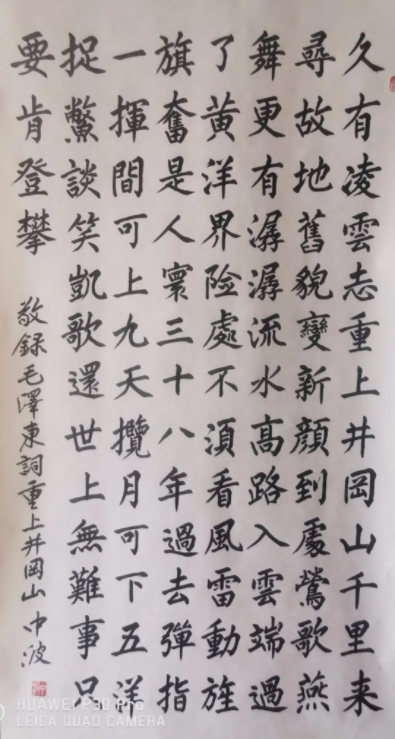 久有凌雲志重上井岡山千里来
尋故地舊貌變新顔到處鶯歌燕
舞更有潺潺流水高路入雲端過
了黄洋界险處不湏看風雷動旌
旗奮是人寰三十八年過去彈指
一揮間可上九天攬月可下五洋
捉鱉談笑凱歌還世上無難事只
要肯登攀
敬録毛澤東詞重上井岡山 中波
HUAWEI P30 PRO
LEICA QUAD CAMERA